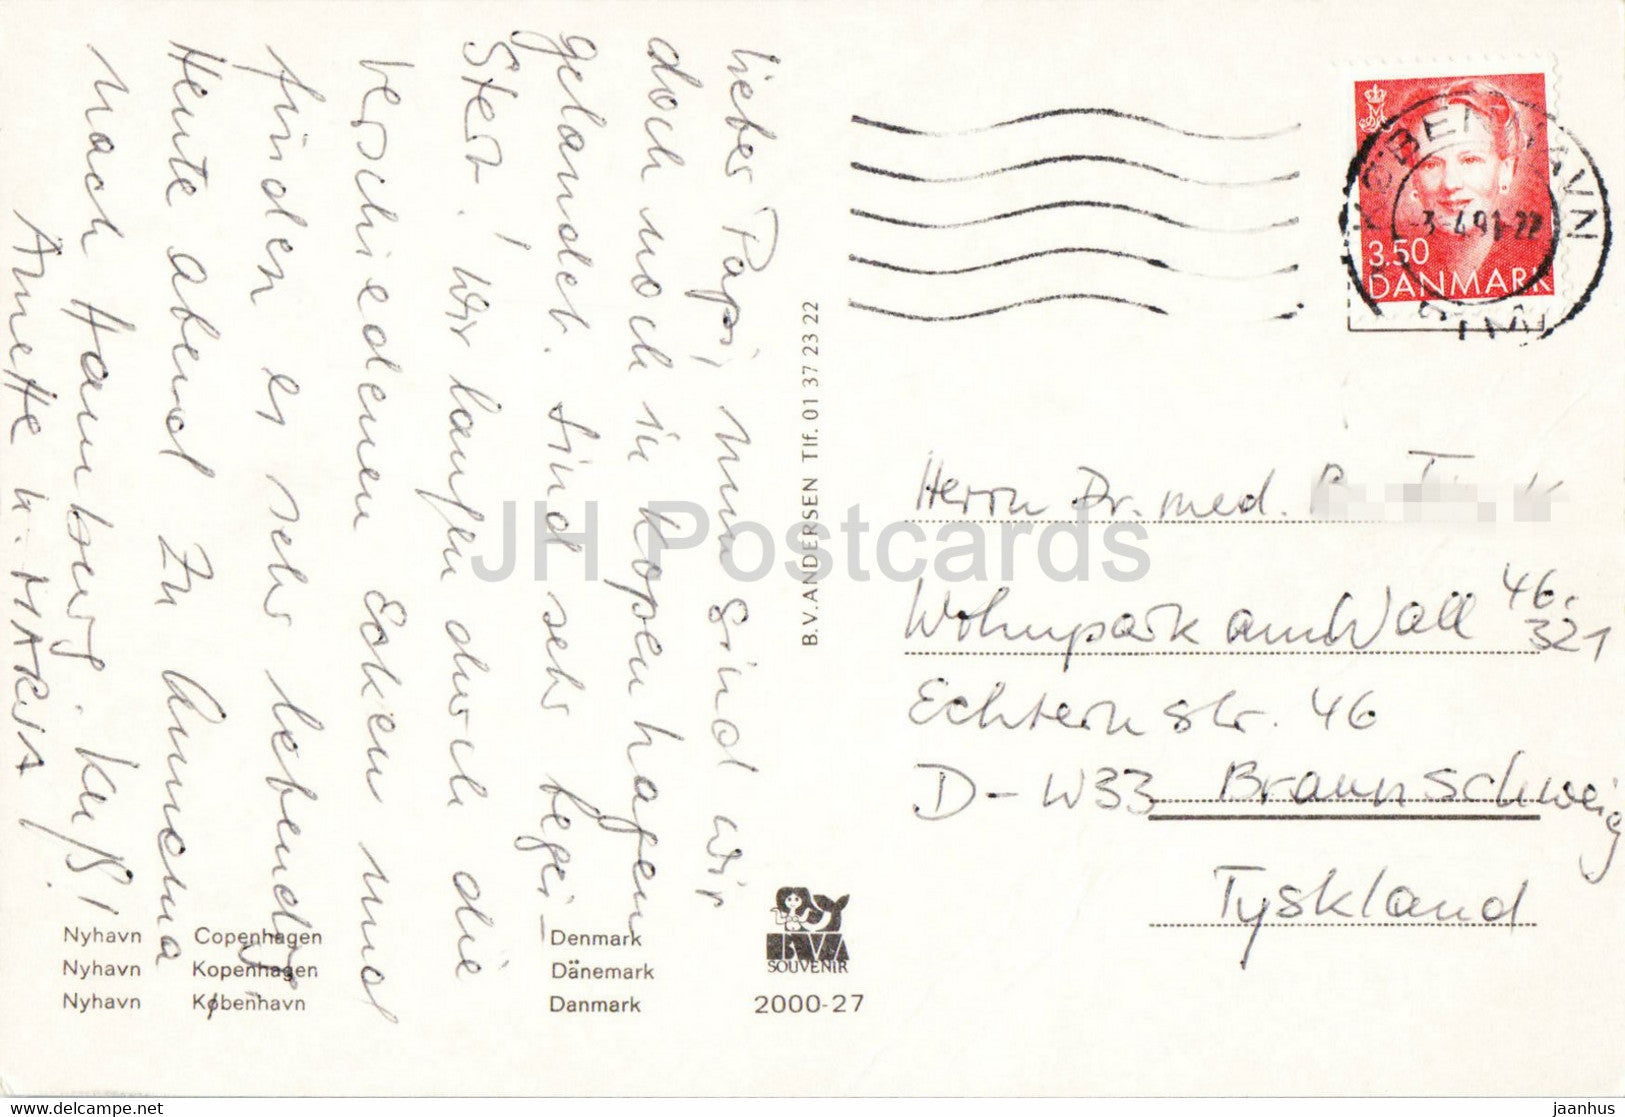 lieber Papi, nun sind wir
doch noch in Kopenhagen
gelandet. Sind sehr begei-
stert. Wir laufen durch die
verschiedenen Ecken und
finden es sehr lebendig
Heute abend zu
nach Hamburg. Kuß!
Annette u. MARIA
KØBENHAVN
3-4.91-22
3.50
DANMARK
Herrn Dr. med.
Wohnpark am Wall 46.
321
Echternstr. 46
D-W33 Braunschweig
Tyskland
B.V. ANDERSEN Tlf. 01 37 23 22
JH Postcards
Nyhavn Copenhagen Denmark
Nyhavn Kopenhagen Dänemark
Nyhavn København Danmark
BVA
SOUVENIR
2000-27
www.delcampe.net
jaanhus